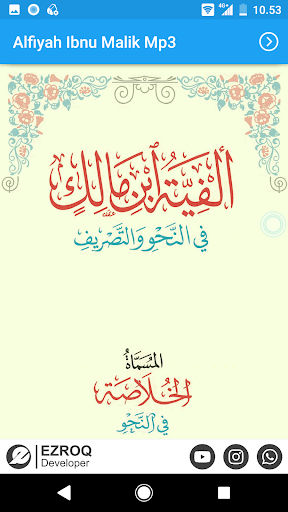 4G 10.53
Alfiyah Ibnu Malik Mp3
ألفية ابن مالك
في النحو والتصريف
المسماة
الخلاصة
في النحو
EZROQ
Developer